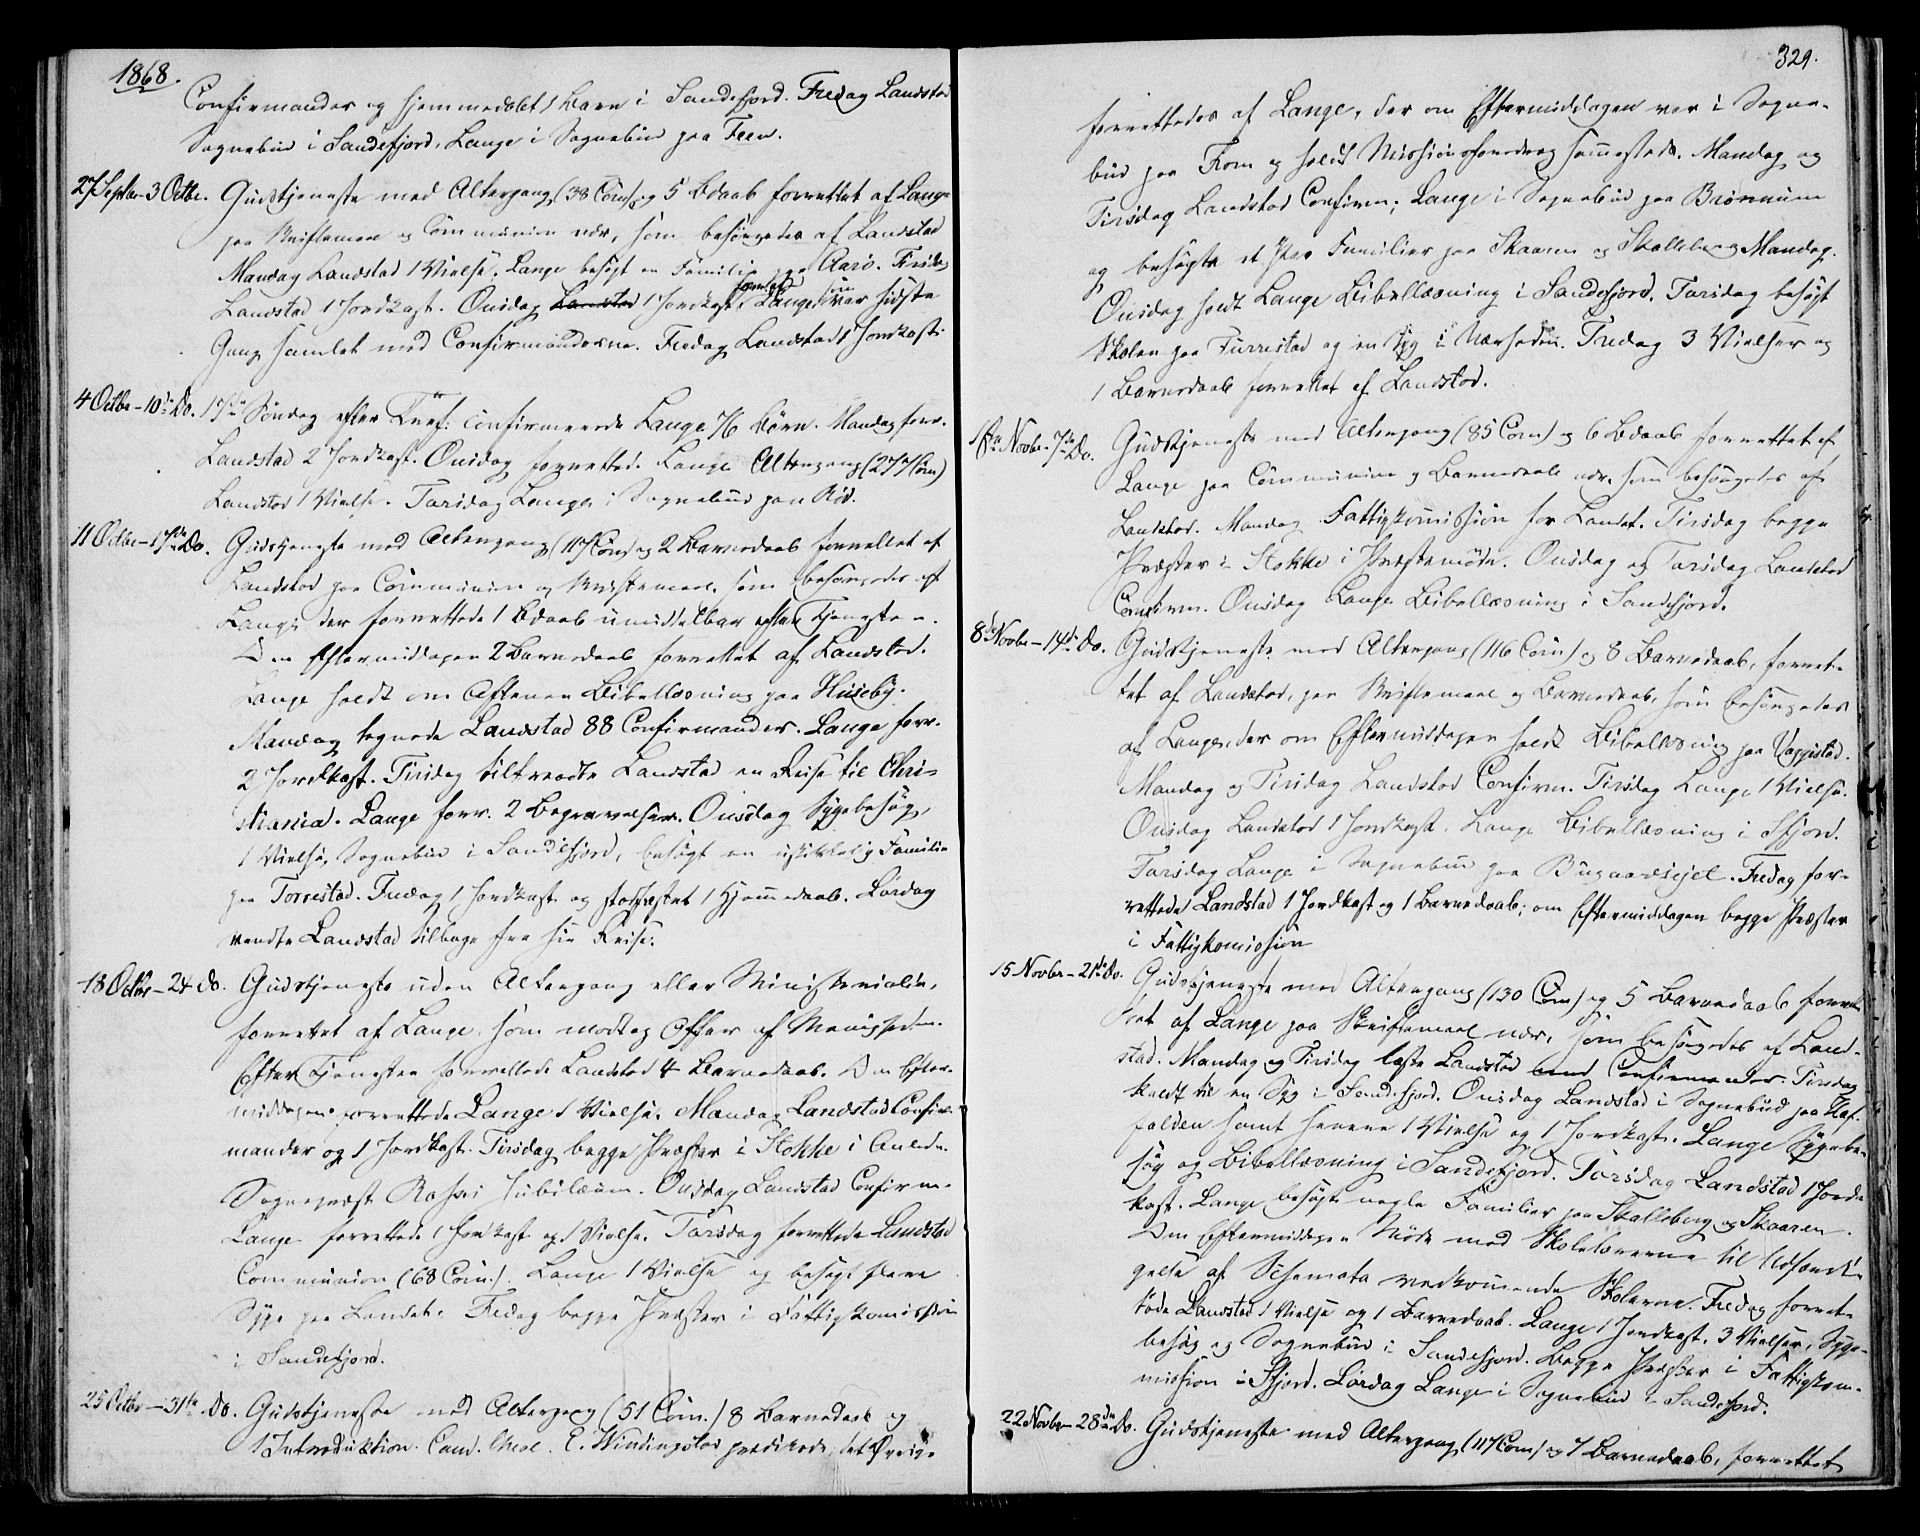 1868.
Confirmander og hjemmedøbt 1 Barn i Sandefjord. Fredag Landstad
Sognebud i Sandefjord, Lange i Sognebud paa Feen.
27 Septbr - 3 Octbr. Gudstjeneste med Altergang (38 Com) og 5 Bdaab forrettet af Lange
paa Skriftemaal og Communion nær, som besørgedes af Landstad
Mandag Landstad 1 Vielse. Lange besøgt en Familie paa Aarø. Tirsdag
Landstad 1 Jordkast. Onsdag Landstad 1 Jordkast, Lange var sidste
Gang samlet med Confirmanderne. Fredag Landstad 1 Jordkast.
4 Octbr - 10de Do. 17de Søndag efter Tref: confirmerede Lange 76 Børn. Mandag forr.
Landstad 2 Jordkast. Onsdag forrettede Lange Altergang (277 Com)
Landstad 1 Vielse. Torsdag Lange i Sognebud paa Rød.
11 Octbr - 17de Do. Gudstjeneste med Altergang (117 Com) og 2 Barnedaab forrettet af
Landstad paa Communion og Skriftemaal, som besørgedes af
Lange der forrettede 1 Bdaab umiddelbar efter Tjenesten.
Om Eftermiddagen 2 Barnedaab forrettet af Landstad.
Lange holdt om Aftenen Bibellæsning paa Huseby.
Mandag tegnede Landstad 88 Confirmander. Lange forr.
2 Jordkast. Tirsdag tiltraadte Landstad en Reise til Chri-
stiania. Lange forr. 2 Begravelser. Onsdag Sygebesøg,
1 Vielse, Sognebud i Sandefjord, besøgt en uskikkelig Familie
paa Torrestad. Fredag 1 Jordkast og stadfæstet 1 Hjemmedaab. Lørdag
vendte Landstad tilbage fra sin Reise.
18 Octbr - 24 Do. Gudstjeneste uden Altergang eller Ministerialia,
forrettet af Lange, som modtog Offer af Menigheden.
Efter Tjenesten forrettede Landstad 4 Barnedaab. Om Efter-
middagen forrettede Lange 1 Vielse. Mandag Landstad Confir-
mander og 1 Jordkast. Tirsdag begge Præster i Stokke i Anledn.
Sognepræst Jubilæum. Onsdag Landstad Confirm.
Lange forrettede 1 Jordkast og 1 Vielse. Torsdag forrettede Landstad
Communion (68 Com.). Lange 1 Vielse og besøgt flere
Syge paa Landet. Fredag begge Præster i Fattigkomission
i Sandefjord.
25 Octbr - 31te Do. Gudstjeneste med Altergang (51 Com.) 8 Barnedaab og
1 Introduktion. Cand. theol. E. Windingstad prædikede, det Øvrige
329.
forrettedes af Lange, der om Eftermiddagen var i Sogne-
bud paa From og holdt Missionsforedrag sammesteds. Mandag og
Tirsdag Landstad Confirm; Lange i Sognebud paa Brønnum
og besøgte et Par Familier paa Skaaren og Skalleberg Mandag.
Onsdag holdt Lange Bibellæsning i Sandefjord. Torsdag besøgt
Skolen paa Furrestad og en Syg i Nærheden. Fredag 3 Vielser og
1 Barnedaab forrettet af Landstad.
1ste Novbr - 7de Do. Gudstjeneste med Altergang (85 Com) og 6 Bdaab forrettet af
Lange paa Communion og Barnedaab nær, som besørgedes af
Landstad. Mandag Fattigkomission for Landet. Tirsdag begge
Præster i Stokke i Præstemøde. Onsdag og Torsdag Landstad
Confirm. Onsdag Lange Bibellæsning i Sandefjord.
8de Novbr - 14de Do. Gudstjeneste med Altergang (116 Com) og 8 Barnedaab, forret-
tet af Landstad, paa Skriftemaal og Barnedaab, som besørgedes
af Lange, der om Eftermiddagen holdt Bibellæsning paa Vaggestad.
Mandag og Tirsdag Landstad Confirm. Tirsdag Lange 1 Vielse.
Onsdag Landstad 1 Jordkast. Lange Bibellæsning i Sfjord.
Torsdag Lange i Sognebud paa Bugaardsejet. Fredag for-
rettede Landstad 1 Jordkast og 1 Barnedaab; om Eftermiddagen begge Præster
i Fattigkomission
15 Novbr - 21de Do. Gudstjeneste med Altergang (130 Com) og 5 Barnedaab forret-
tet af Lange paa Skriftemaal nær, som besørgedes af Land-
stad. Mandag og Tirsdag læste Landstad med Confirmander. Tirsdag
kaldt til en Syg i Sandefjord. Onsdag Landstad i Sognebud paa Kat-
falden samt senere 1 Vielse og 1 Jordkast. Lange Sygebe-
søg og Bibellæsning i Sandefjord. Torsdag Landstad 1 Jord-
kast. Lange besøgte nogle Familier paa Skalleberg og Skaaren.
Om Eftermiddagen Møde med Skolelærerne til Udfær-
gelse af Schemata vedkommende Skolerne. Fredag forret-
tede Landstad 1 Vielse og 1 Barnedaab. Lange 1 Jordkast. 3 Vielser, Syge-
besøg og Sognebud i Sandefjord. Begge Præster i Fattigkom-
mission i Sfjord. Lørdag Lange i Sognebud i Sandefjord.
22 Novbr - 28de Do. Gudstjeneste med Altergang (117 Com) og 7 Barnedaab, forrettet